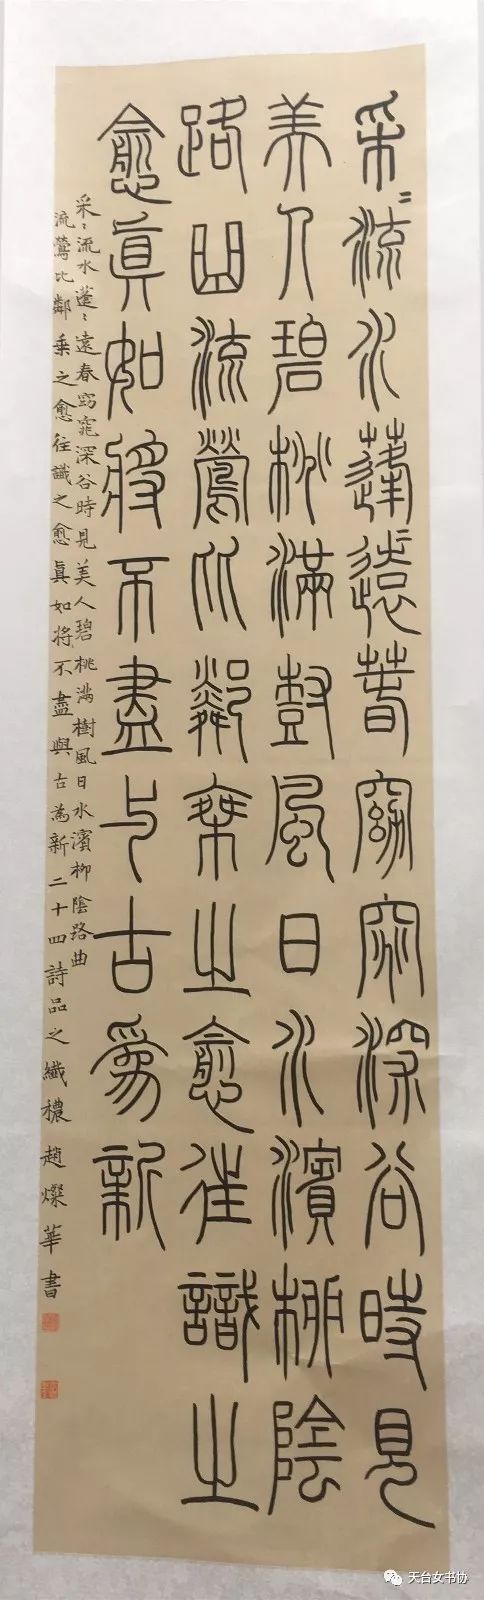 采〻流水蓬〻遠春窈窕深谷時見
美人碧桃滿樹風日水濱柳陰
路曲流鶯比鄰乘之愈往識之
愈真如將不盡與古為新
采〻流水蓬〻遠春窈窕深谷時見美人碧桃滿樹風日水濱柳陰路曲
流鶯比鄰乘之愈往識之愈真如將不盡與古為新二十四詩品之纖穠趙燦華書
天台女书协